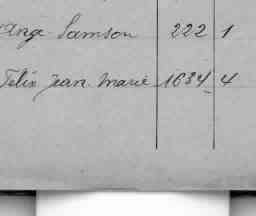 Ange Samson 222 1
Felix Jean Marie 1634 4